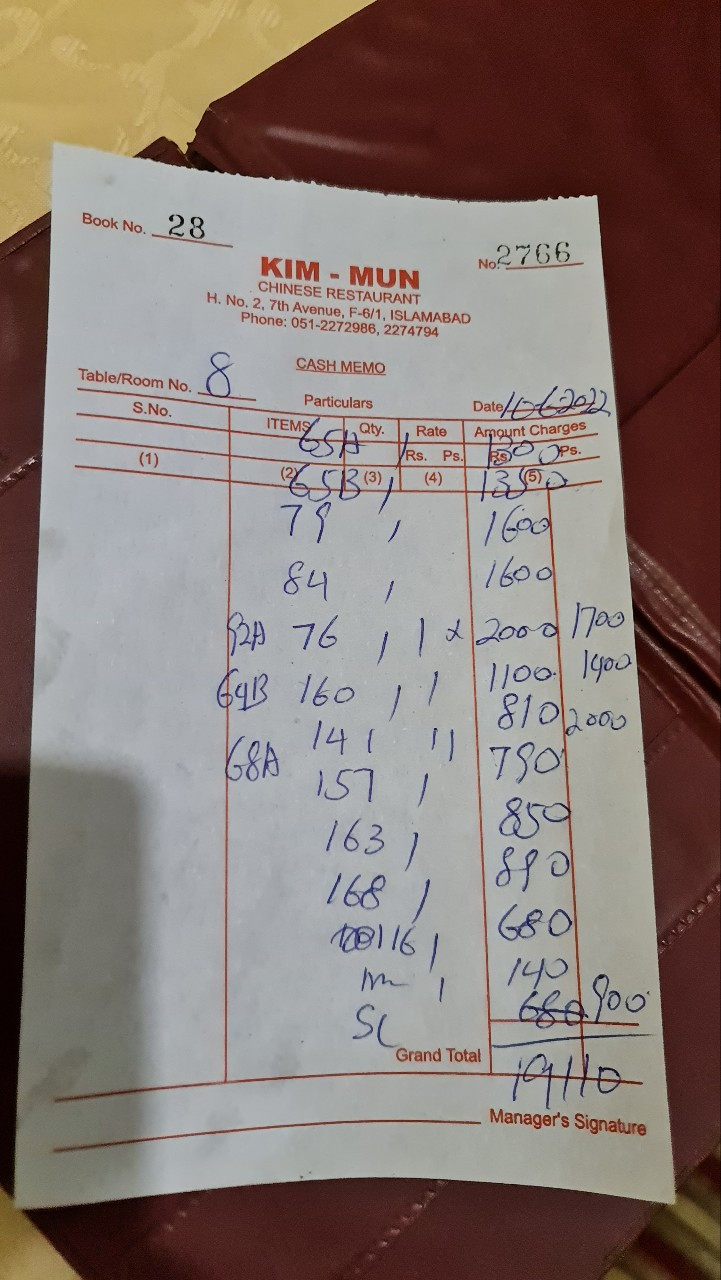 Book No. 28
No. 2766
KIM - MUN
CHINESE RESTAURANT
H. No. 2, 7th Avenue, F-6/1, ISLAMABAD
Phone: 051-2272986, 2274794
CASH MEMO
Table/Room No. 8
Particulars
Date 10-6-2022
S.No. ITEMS Qty. Rate Amount Charges
Rs. Ps. Rs. Ps.
65A 1 1300
(1) (2) (3) (4) (5)
65B 1 1350
79 1 1600
84 1 1600
92A 76 1 1 2000 1700
64B 160 1 1 1100 1400
141 1 11 810 2000
68A 157 1 790
163 1 850
168 1 890
116 1 680
1 140
SC 680 900
Grand Total 19110
Manager's Signature